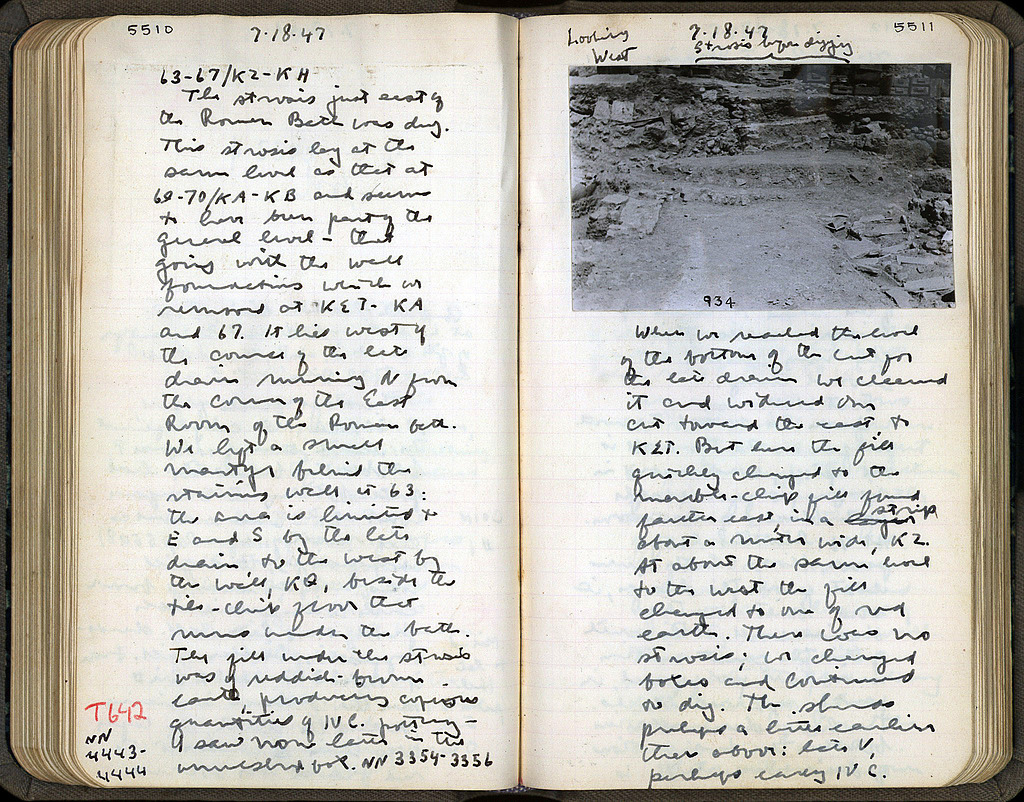 5510
7·18·47
63-67/KZ-KH
The strosis just east of
the Roman Bath was dug.
This strosis lay at the
same level as that at
69-70/KA-KB and seems
to have been part of the
general level - that
going with the wall
foundations which we
removed at KΣT- KA
and 67. It lies west of
the corner of the late
drain running N from
the corner of the East
Room of the Roman bath.
We left a small
martyr behind the
staining wall at 63:
the area is limited to
E and S by the late
drain to the west by
the wall, KΘ, beside the
tile-chip floor that
runs under the bath.
The fill under the strosis
was of reddish-brown
earth, producing copious
quantities of IV C. pottery-
I saw none later in the
unwashed pot. NN 3354-3356
T642
NN
4443-
4444
5511
7·18·47
Looking
West
Strosis before digging
934
When we reached the level
of the bottom of the cut for
the late drain we cleaned
it and widened our
cut toward the east to
KΣT. But here the fill
quickly changed to the
marble-chip fill found
farther east, in a strip
about a meter wide, KZ.
At about the same level
to the west the fill
changed to one of red
earth. There was no
strosis; we changed
boxes and continued
to dig. The sherds
perhaps a little earlier
than above: late V,
perhaps early IV C.